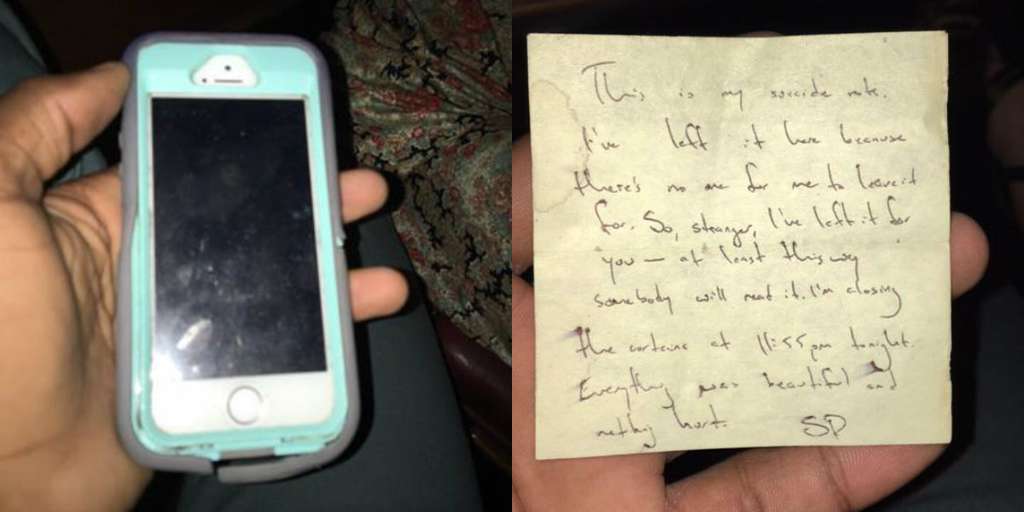 This is my suicide note.
I've left it here because
there's no one for me to leave it
for. So, stranger, I've left it for
you — at least this way
somebody will read it. I'm closing
the curtains at 11:55pm tonight.
Everything was beautiful and
nothing hurt. SP